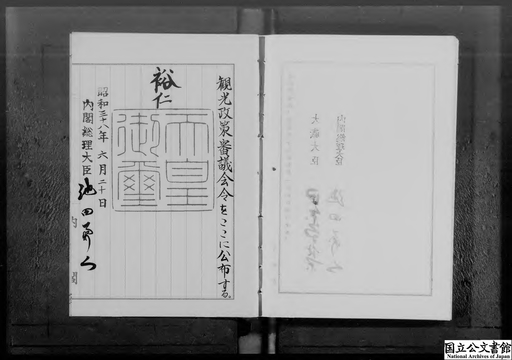 観光政策審議会令をここに公布する。
裕仁
天皇御璽
昭和三十八年六月二十日
内閣総理大臣 池田勇人
内閣
内閣総理大臣
大蔵大臣
国立公文書館
National Archives of Japan